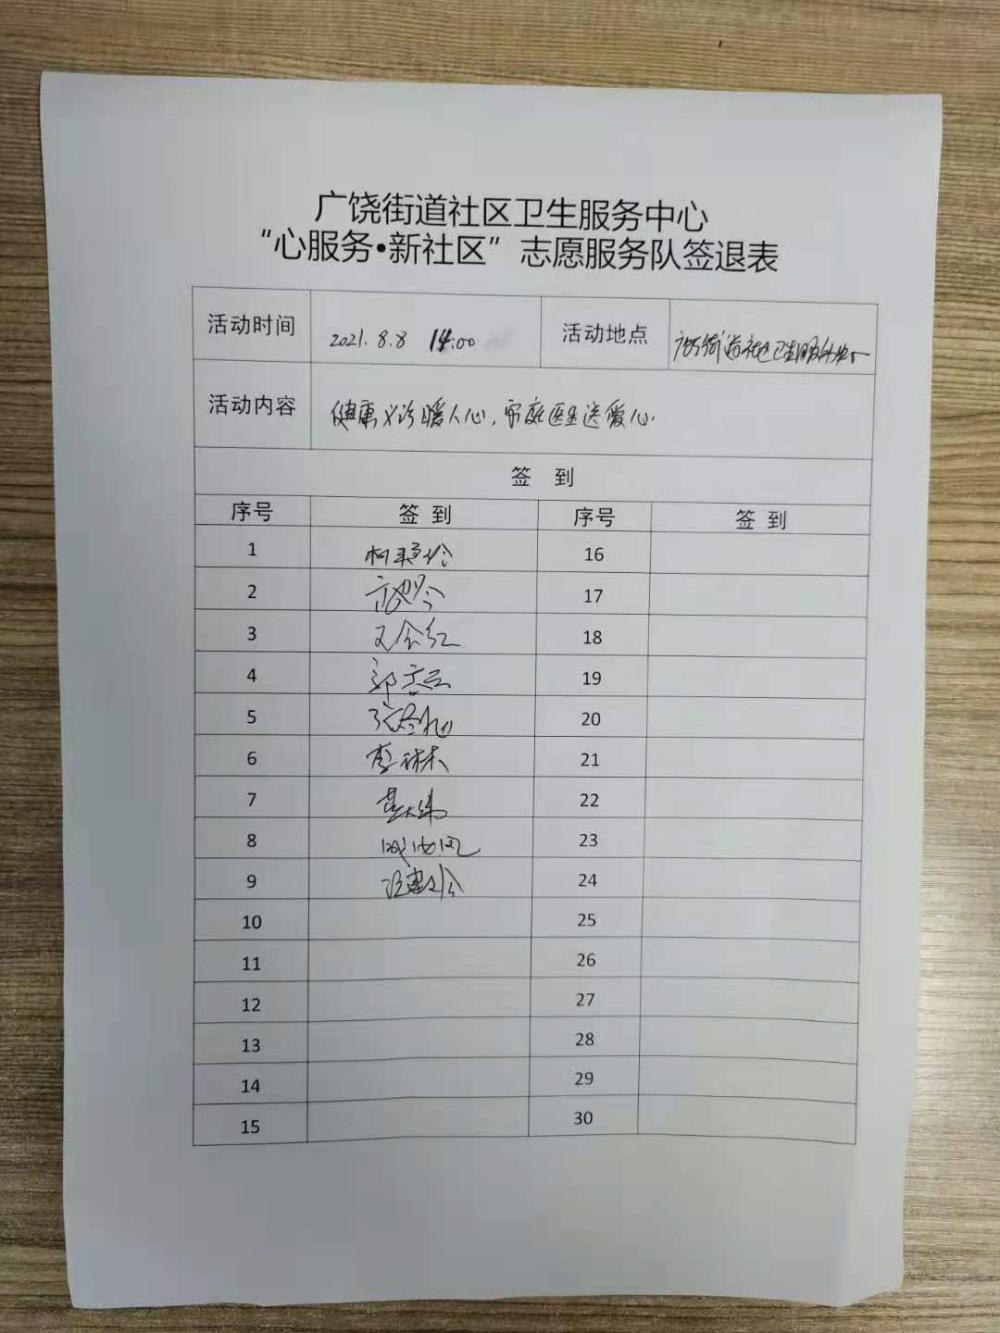 广饶街道社区卫生服务中心
“心服务•新社区”志愿服务队签退表
活动时间 2021.8.8 14:00 活动地点 广饶街道社区卫生服务中心
活动内容 健康义诊暖人心,家庭医生送爱心.
签 到
序号 签 到 序号 签 到
1 16
2 17
3 18
4 19
5 20
6 李林杰 21
7 22
8 23
9 24
10 25
11 26
12 27
13 28
14 29
15 30